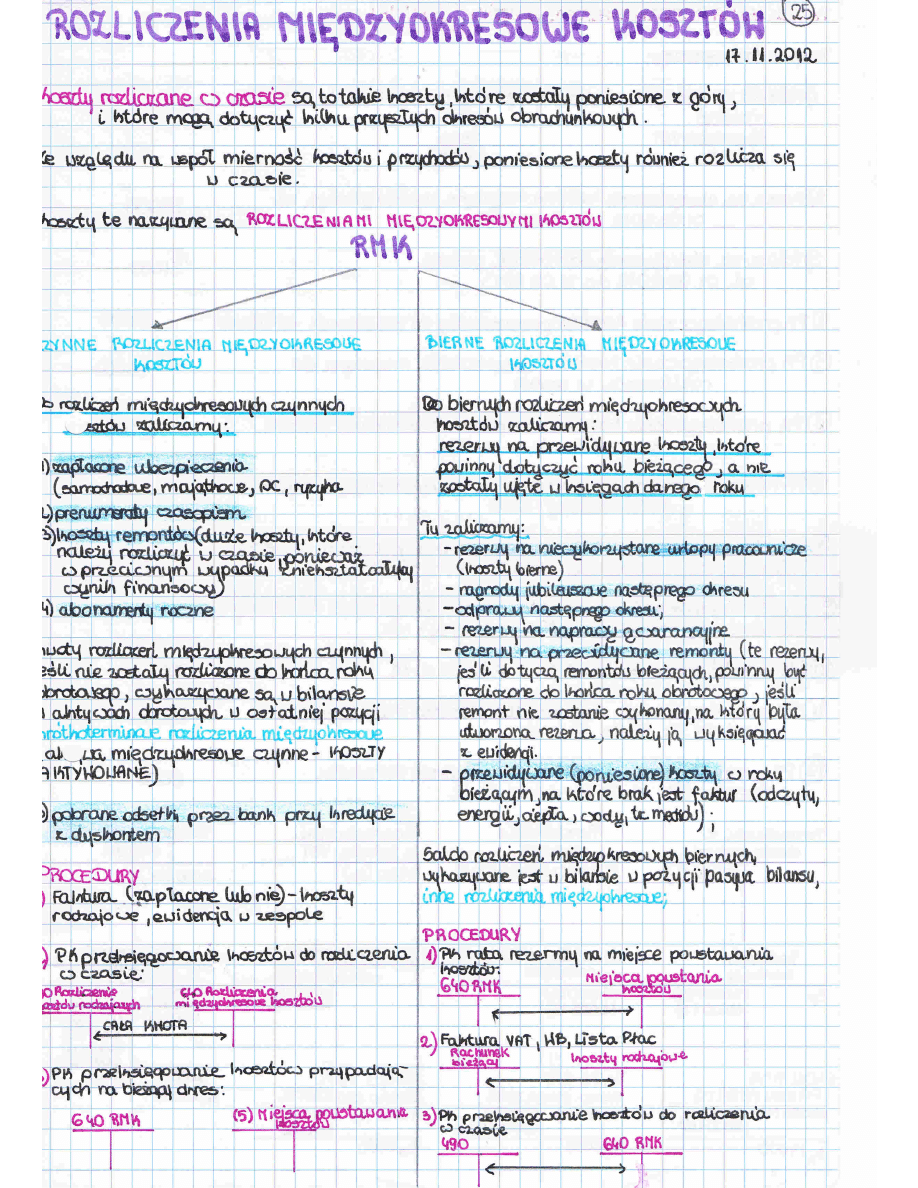 ROZLICZENIA MIĘDZYOKRESOWE KOSZTÓW
25
17.11.2012
koszty rozliczane w czasie są to takie koszty, które zostały poniesione z góry,
i które mogą dotyczyć kilku przyszłych okresów obrachunkowych.
Ze względu na współmierność kosztów i przychodów, poniesione koszty również rozlicza się
w czasie.
koszty te nazywane są ROZLICZENIAMI MIĘDZYOKRESOWYMI KOSZTÓW
RMK
ZYNNE ROZLICZENIA MIĘDZYOKRESOWE
KOSZTÓW
o rozliczeń międzyokresowych czynnych
sztów zaliczamy:
1) zapłacone ubezpieczenia
(samochodowe, majątkowe, OC, ryzyka
2) prenumeraty czasopism
3) koszty remontów (duże koszty, które
należy rozliczyć w czasie, ponieważ
w przeciwnym wypadku zniekształcałyby
wynik finansowy)
4) abonamenty roczne
kwoty rozliczeń międzyokresowych czynnych,
eśli nie zostały rozliczone do końca roku
obrotowego, wykazywane są w bilansie
w aktywach obrotowych w ostatniej pozycji
krótkoterminowe rozliczenia międzyokresowe
międzyokresowe czynne - KOSZTY
AKTYWOWANE)
) pobrane odsetki przez bank przy kredycie
z dyskontem
PROCEDURY
) Faktura (zapłacone lub nie) - koszty
rodzajowe, ewidencja w zespole
) PK przeksięgowanie kosztów do rozliczenia
w czasie:
0 Rozliczenie
kosztów rodzajowych
640 Rozliczenia
międzyokresowe kosztów
CAŁA KWOTA
) PK przeksięgowanie kosztów przypadają-
cych na bieżący okres:
640 RMK
(5) Miejsca powstawania
kosztów
BIERNE ROZLICZENIA MIĘDZYOKRESOWE
KOSZTÓW
Do biernych rozliczeń międzyokresowych
kosztów zaliczamy:
rezerwy na przewidywane koszty, które
powinny dotyczyć roku bieżącego, a nie
zostały ujęte w księgach danego roku
Tu zaliczamy:
- rezerwy na niewykorzystane urlopy pracownicze
(koszty bierne)
- nagrody jubileuszowe następnego okresu
- odprawy następnego okresu;
- rezerwy na naprawy gwarancyjne
- rezerwy na przewidywane remonty (te rezerwy,
jeśli dotyczą remontów bieżących, powinny być
rozliczone do końca roku obrotowego, jeśli
remont nie zostanie wykonany, na który była
utworzona rezerwa, należy ją wyksięgować
z ewidencji.
- przewidywane (poniesione) koszty w roku
bieżącym, na które brak jest faktur (odczytu,
energii, ciepła, wody, tz mediów);
Saldo rozliczeń międzyokresowych biernych,
wykazywane jest w bilansie w pozycji pasywa bilansu,
inne rozliczenia międzyokresowe;
PROCEDURY
1) PK rata rezerwy na miejsce powstawania
kosztów:
640 RMK
Miejsca powstania
kosztów
2) Faktura VAT, WB, Lista Płac
Rachunek
bieżący
koszty rodzajowe
3) PK przeksięgowanie kosztów do rozliczenia
w czasie
490
640 RMK